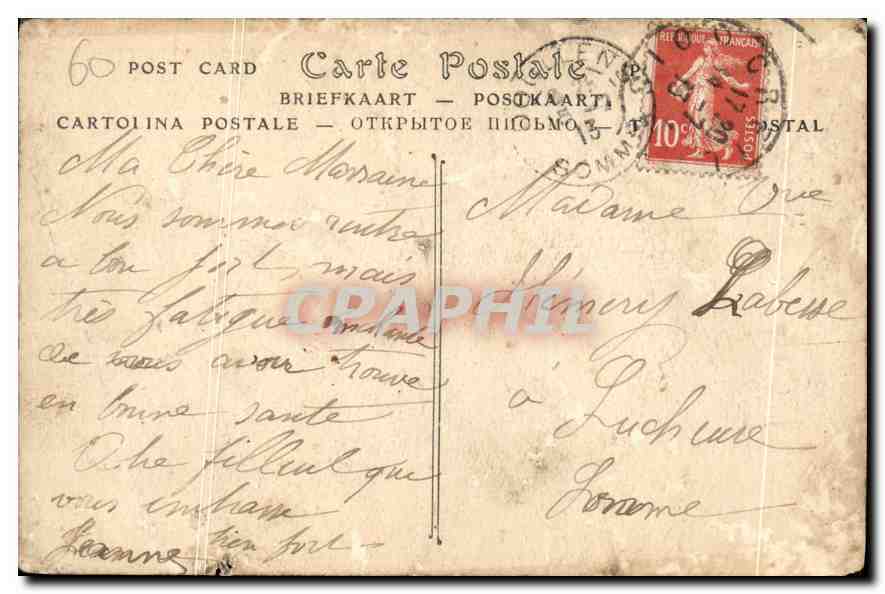 60
POST CARD
Carte Postale
BRIEFKAART — POSTKAART
CARTOLINA POSTALE — ОТКРЫТОЕ ПИСЬМО — OSTAL
REPUBLIQUE FRANÇAISE
10c
POSTES
SOMME
13
17
Ma Chère Marraine
Nous sommes rentre
a bon port, mais
très fatigue contante
de vous avoir trouve
en bonne sante
filleul que
vous embrasse
Jeanne bien fort
Madame Vve
Hémery Labesse
à Lucheux
Somme
CPAPHIL